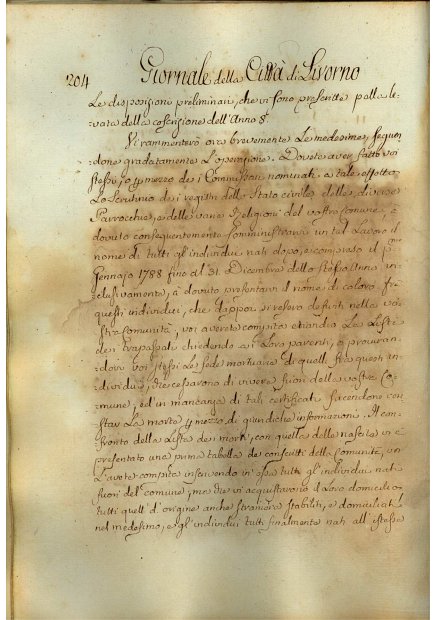 204
Giornale della Città di Livorno
Le disposizioni preliminari, che vi sono prescritte p[er] la le-
vata della coscrizione dell'Anno 8°.
Vi rammentero ora brevemente Le medesime, seguen-
done gradatamente L'operazione. Dovete aver fatto voi
stessi, o p mezzo dei Commissari nominati a tale effetto
Lo scrutinio dei registri dello Stato civile delle diverse
Parrocchie, e delle varie Religioni del vostro comune, è
dovuto conseguentemente somministrarvi un tal Lavoro il
nome di tutti gl'individui nati dopo, e compreso il p^mo
Gennajo 1788 fino al 31. Dicembre dello stesso Anno in-
clusivamente, à dovuto presentarvi il nome di coloro, fra
questi individui, che dappoi si resero defunti nella vo-
stra comunità, voi avrete compita etiandio La Lista
dei trapassati chiedendo ai Loro parenti, o procuran-
dovi voi stessi Le fede mortuarie di quelli fra questi in-
dividui, che cessarono di vivere fuori della vostra Co-
mune, ed in mancanza di tali certificati facendone con-
star La morte p mezzo di giuridiche informazioni. Il con-
fronto della Lista dei morti, con quella delle nascite vi è
presentato una prima tabella dei conscritti della Comunità, voi
L'avete compita inserendo in essa tutti gl'individui nati
fuori del comune, ma che vi acquistarono il Loro domicilio
tutti quelli d'origine anche straniera stabiliti, e domiciliati
nel medesimo, e gl'individui tutti finalmente nati all'istessa